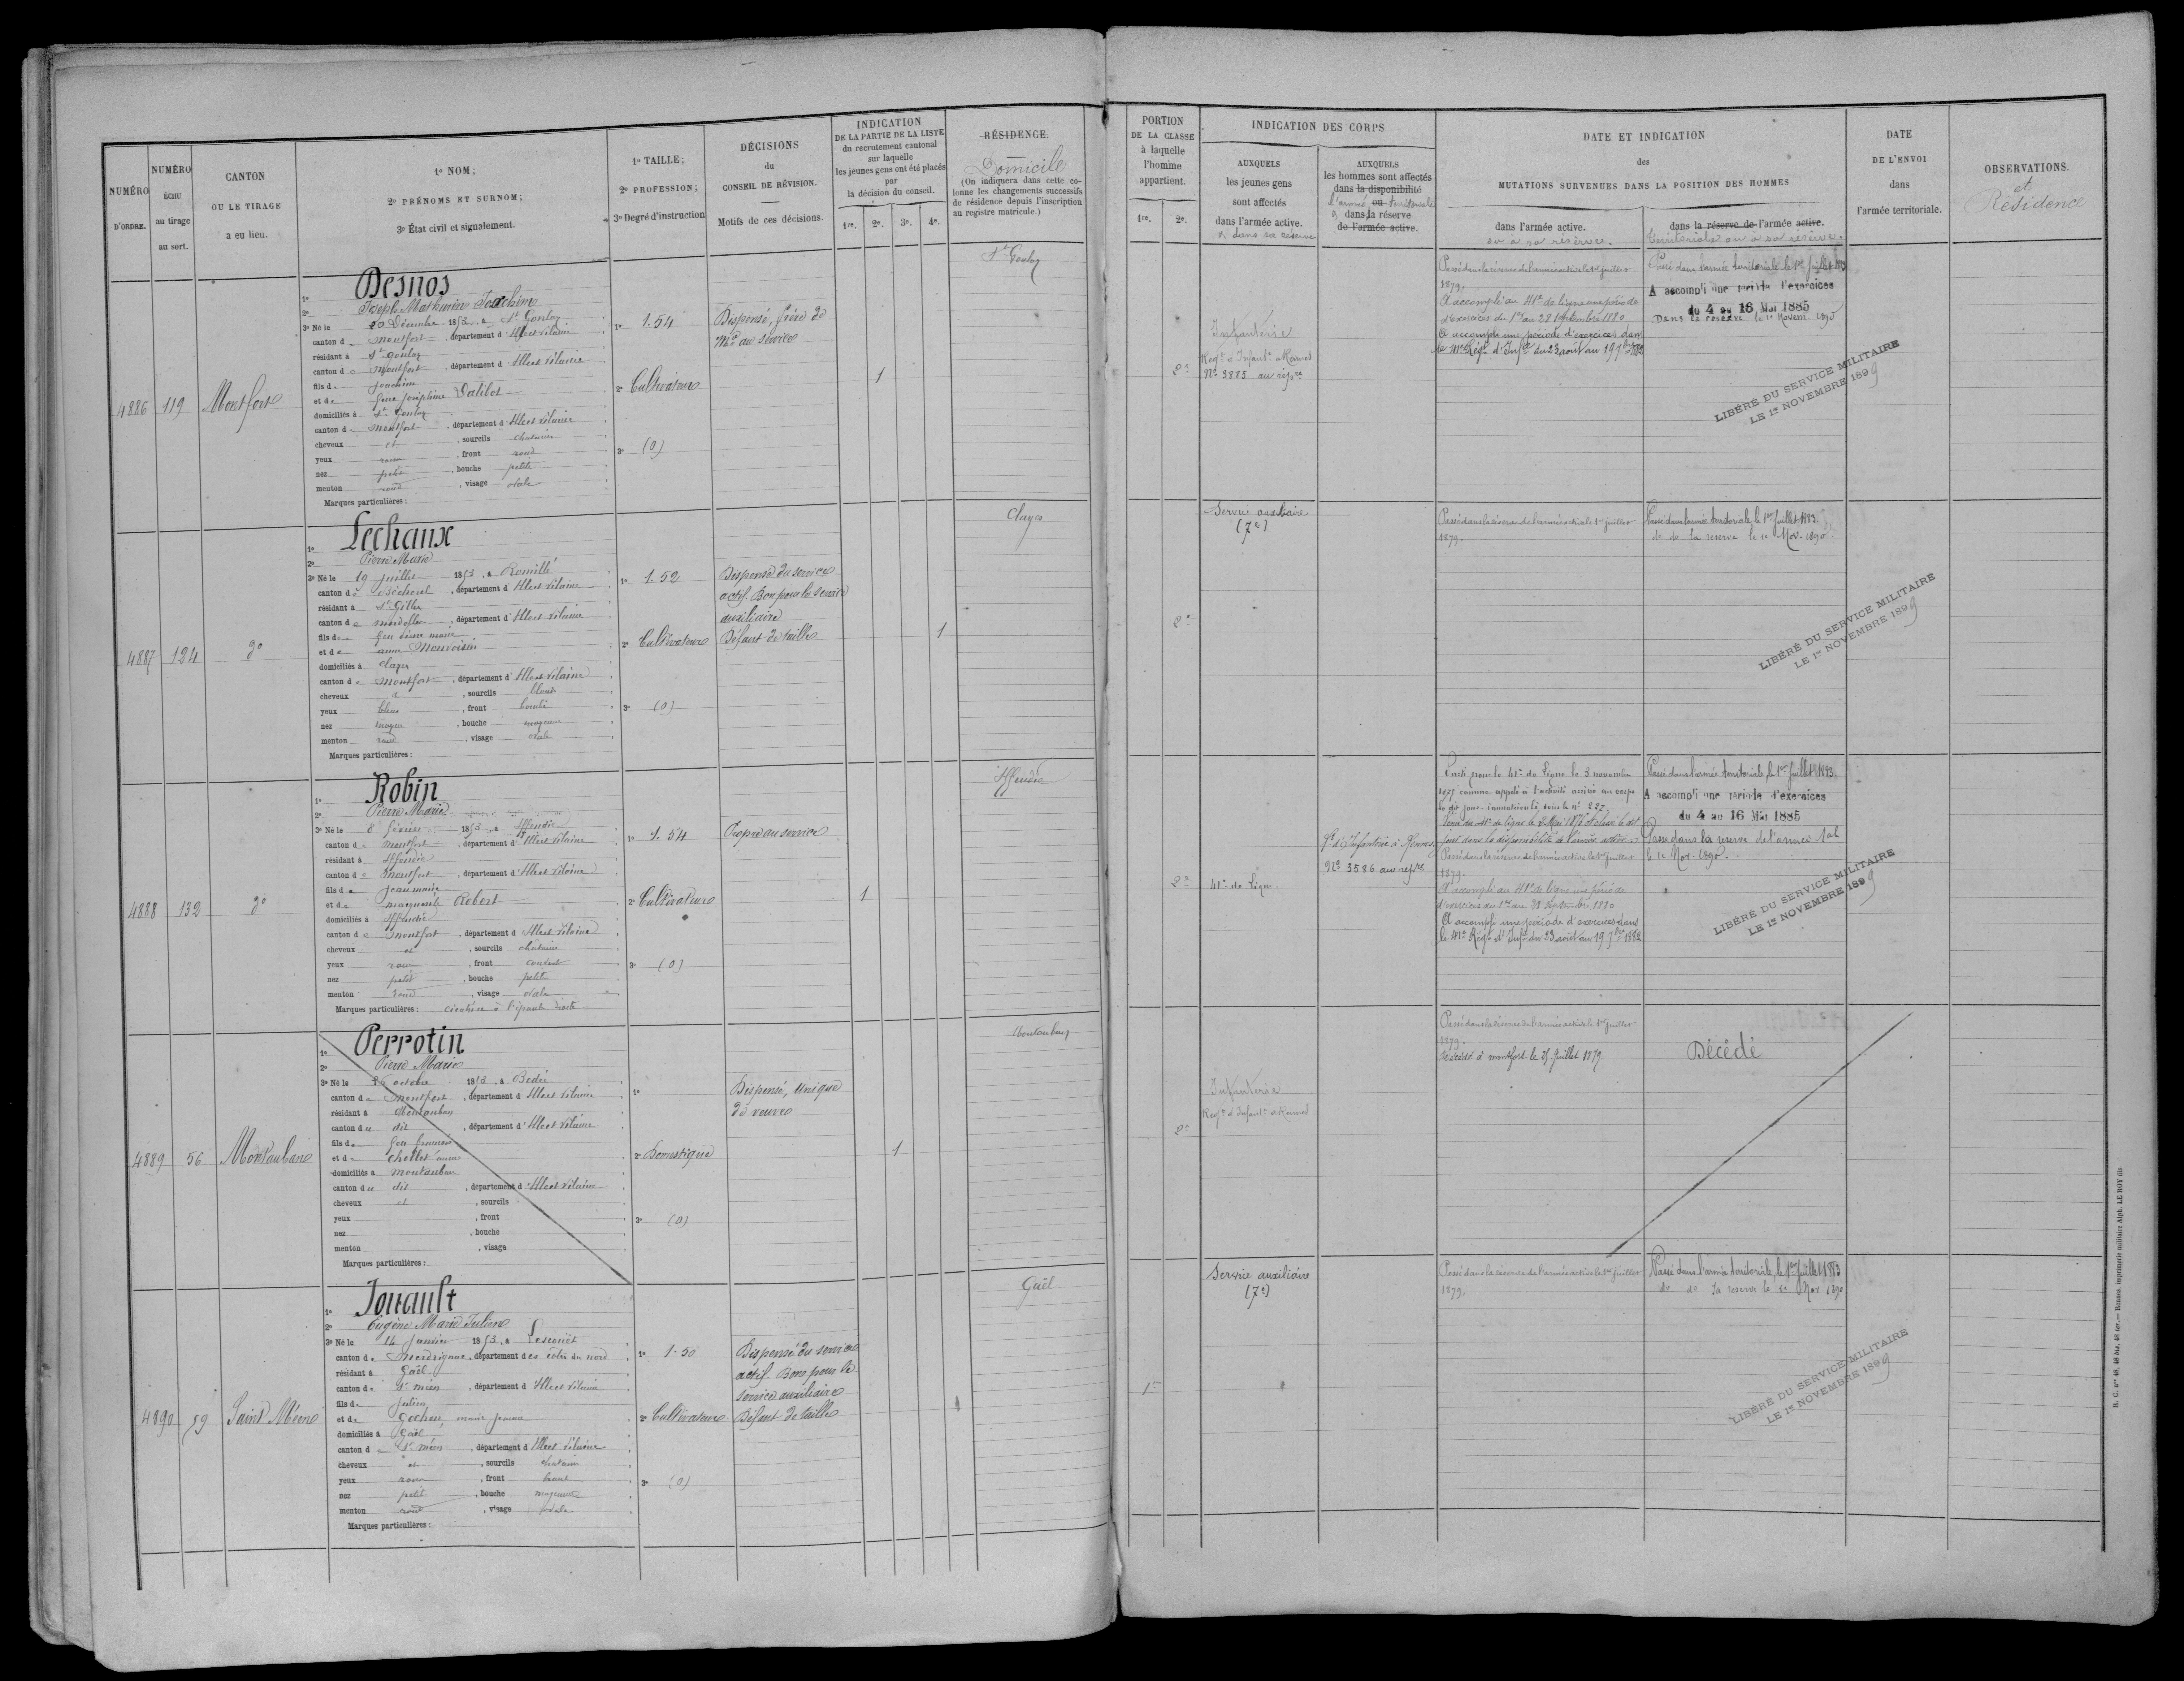 NUMÉRO
D'ORDRE.
NUMÉRO
ÉCHU
au tirage
au sort.
CANTON
OU LE TIRAGE
a eu lieu.
1º NOM;
2º PRÉNOMS ET SURNOM;
3º État civil et signalement.
1º TAILLE;
2º PROFESSION;
3º Degré d'instruction
DÉCISIONS
du
CONSEIL DE RÉVISION.
Motifs de ces décisions.
INDICATION
DE LA PARTIE DE LA LISTE
du recrutement cantonal
sur laquelle
les jeunes gens ont été placés
par
la décision du conseil.
1re. 2e. 3e. 4e.
RÉSIDENCE.
Domicile
(On indiquera dans cette co-
lonne les changements successifs
de résidence depuis l'inscription
au registre matricule.)
PORTION
DE LA CLASSE
à laquelle
l'homme
appartient.
1re. 2e.
INDICATION DES CORPS
AUXQUELS
les jeunes gens
sont affectés
dans l'armée active.
& dans sa réserve
AUXQUELS
les hommes sont affectés
dans la disponibilité
l'armée ou territoriale
& dans la réserve
de l'armée active.
DATE ET INDICATION
des
MUTATIONS SURVENUES DANS LA POSITION DES HOMMES
dans l'armée active.
ou à sa réserve.
dans la réserve de l'armée active.
territoriale ou à sa réserve.
DATE
DE L'ENVOI
dans
l'armée territoriale.
OBSERVATIONS.
et
Résidence
4886 119 Montfort
1º Desnos
2º Joseph Mathurin Joachim
3º Né le 20 Décembre 1853, à St Gonlay
canton de Montfort, département d'Ille et Vilaine
résidant à St Gonlay
canton de Montfort, département d'Ille et Vilaine
fils de Joachim
et de feue Joséphine Dalibot
domiciliés à St Gonlay
canton de Montfort, département d'Ille et Vilaine
cheveux et, sourcils chatains
yeux roux, front rond
nez petit, bouche petite
menton rond, visage ovale
Marques particulières:
1º 1.54
2º Cultivateur
3º (0)
Dispensé, frère de
Mre au service
1
St Gonlay
2e
Infanterie
Régt d'Infant. à Rennes
No 3885 au rép.re
Passé dans la réserve de l'armée active le 1er juillet
1879.
A accompli au 41e de ligne une période
d'exercices du 1er au 28 septembre 1880
A accompli une période d'exercices dans
le 41e Régt d'Infie du 23 août au 19 7bre 1882
Passé dans l'armée territoriale le 1er juillet 1883
A accompli une période d'exercices
du 4 au 16 Mai 1885
Dans la réserve le 1er Novem. 1890
LIBÉRÉ DU SERVICE MILITAIRE
LE 1er NOVEMBRE 1899
4887 124 do
1º Lechaux
2º Pierre Marie
3º Né le 19 juillet 1853, à Romillé
canton de Bécherel, département d'Ille et Vilaine
résidant à St Gilles
canton de Mordelles, département d'Ille et Vilaine
fils de feu Pierre Marie
et de Anne Monvoisin
domiciliés à Clayes
canton de Montfort, département d'Ille et Vilaine
cheveux et, sourcils blonds
yeux bleus, front bombé
nez moyen, bouche moyenne
menton rond, visage ovale
Marques particulières:
1º 1.52
2º Cultivateur
3º (0)
Dispensé du service
actif. Bon pour le service
auxiliaire
Défaut de taille
1
Clayes
2e
Service auxiliaire
(7e)
Passé dans la réserve de l'armée active le 1er juillet
1879.
Passé dans l'armée territoriale le 1er Juillet 1883.
do do la réserve le 1er Nov. 1890.
LIBÉRÉ DU SERVICE MILITAIRE
LE 1er NOVEMBRE 1899
4888 132 do
1º Robin
2º Pierre Marie
3º Né le 8 février 1853, à Iffendic
canton de Montfort, département d'Ille et Vilaine
résidant à Iffendic
canton de Montfort, département d'Ille et Vilaine
fils de Jean Marie
et de Marguerite Robert
domiciliés à Iffendic
canton de Montfort, département d'Ille et Vilaine
cheveux et, sourcils châtains
yeux roux, front couvert
nez petit, bouche petite
menton rond, visage ovale
Marques particulières: cicatrice à l'épaule droite
1º 1.54
2º Cultivateur
3º (0)
Propre au service
1
Iffendic
2e
41e de Ligne
Rt d'Infanterie à Rennes
No 3586 au rép.re
Parti pour le 41e de Ligne le 3 novembre
comme appelé à l'activité arrivé au corps
le dit jour. immatriculé sous le No 227.
jour dans la disponibilité de l'armée active.
Passé dans la réserve de l'armée active le 1er juillet
1879.
A accompli au 41e de ligne une période
d'exercices du 1er au 28 septembre 1880
A accompli une période d'exercices dans
le 41e Régt d'Infie du 23 août au 19 7bre 1882
Passé dans l'armée territoriale le 1er Juillet 1883.
A accompli une période d'exercices
du 4 au 16 Mai 1885
Passé dans la réserve de l'armée Tale
le 1er Nov. 1890.
LIBÉRÉ DU SERVICE MILITAIRE
LE 1er NOVEMBRE 1899
4889 56 Montauban
1º Perrotin
2º Pierre Marie
3º Né le octobre 1853, à Bédée
canton de Montfort, département d'Ille et Vilaine
résidant à Montauban
canton du dit, département d'Ille et Vilaine
fils de feu François
et de Chollet Anne
domiciliés à Montauban
canton du dit, département d'Ille et Vilaine
cheveux et, sourcils
yeux, front
nez, bouche
menton, visage
Marques particulières:
1º
2º Domestique
3º (0)
Dispensé, unique
de veuve
1
Montauban
2e
Infanterie
Régt d'Infant. à Rennes
Passé dans la réserve de l'armée active le 1er juillet
1879.
Décédé à Montfort le 25 juillet 1879.
Décédé
4890 59 Saint Méen
1º Jouault
2º Eugène Marie Julien
3º Né le 14 janvier 1853, à Lescouët
canton de Merdrignac, département des Côtes du Nord
résidant à Gaël
canton de St Méen, département d'Ille et Vilaine
fils de Julien
et de
domiciliés à Gaël
canton de St Méen, département d'Ille et Vilaine
cheveux et, sourcils chatains
yeux roux, front haut
nez petit, bouche moyenne
menton rond, visage ovale
Marques particulières:
1º 1.50
2º Cultivateur
3º (0)
Dispensé du service
actif. Bon pour le
service auxiliaire
Défaut de taille
1
Gaël
1re
Service auxiliaire
(7e)
Passé dans la réserve de l'armée active le 1er juillet
1879.
Passé dans l'armée territoriale le 1er Juillet 1883
do do la réserve le 1er Nov. 1890
LIBÉRÉ DU SERVICE MILITAIRE
LE 1er NOVEMBRE 1899
R. C. nos 48, 48 bis, 48 ter.— Rennes, imprimerie militaire Alph. LE ROY fils